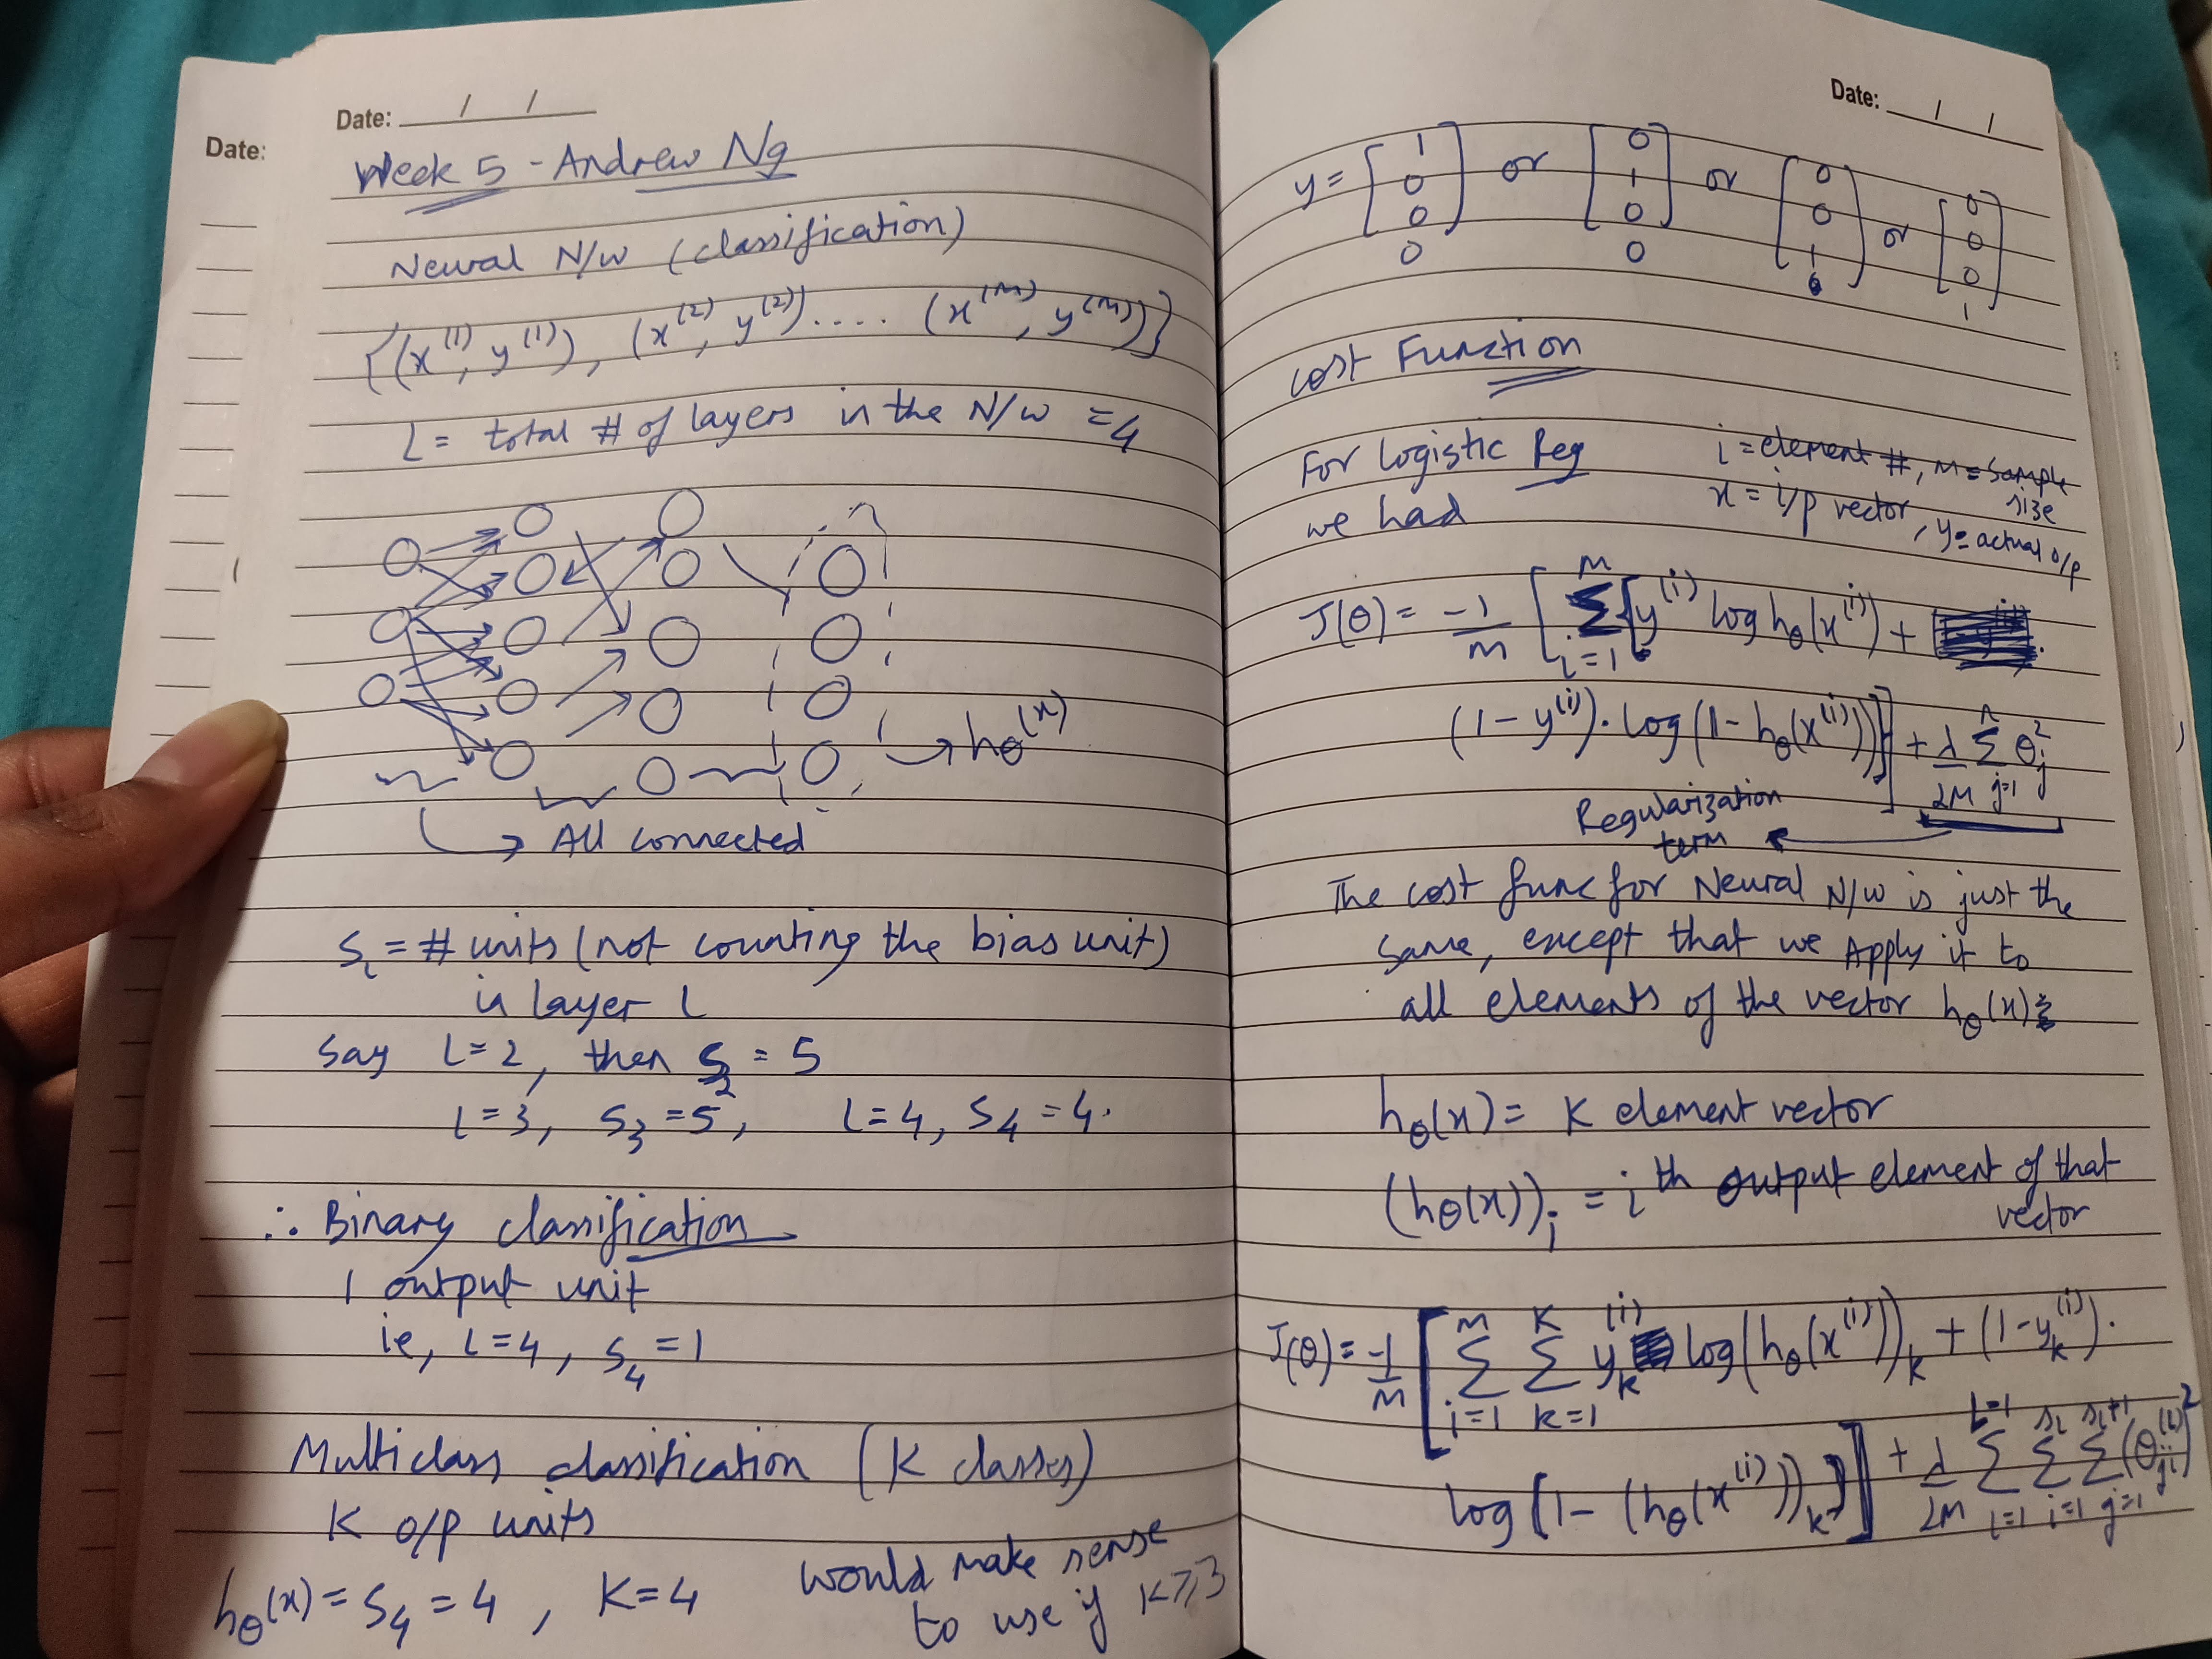 Date: / /
Date:
Week 5 - Andrew Ng
Neural N/w (classification)
{(x^(1), y^(1)), (x^(2), y^(2)).... (x^(m), y^(m))}
L = total # of layers in the N/w = 4
→ hθ(x)
→ All connected
S_L = # units (not counting the bias unit)
in layer L
Say L=2, then S_2 = 5
L=3, S_3 = 5, L=4, S_4 = 4.
∴ Binary classification
1 output unit
ie, L=4, S_4 = 1
Multiclass classification (K classes)
K o/p units
hθ(x) = S_4 = 4, K=4
would make sense
to use if K≥3
Date: / /
y = [1 0 0 0] or [0 1 0 0] or [0 0 1 0] or [0 0 0 1]
Cost Function
For Logistic Reg
we had
i = element #, m = sample
size
x = i/p vector, y = actual o/p
J(θ) = -1/m [ Σ_{i=1}^{m} { y^(i) log hθ(x^(i)) +
(1-y^(i)). log(1-hθ(x^(i)))}] + λ/2m Σ_{j=1}^{n} θ_j^2
Regularization
term
The cost func for Neural N/w is just the
same, except that we Apply it to
all elements of the vector hθ(x):
hθ(x) = K element vector
(hθ(x))_i = i^th output element of that
vector
J(θ) = -1/m [ Σ_{i=1}^{m} Σ_{k=1}^{K} y_k^(i) log(hθ(x^(i)))_k + (1-y_k^(i)).
log[1-(hθ(x^(i)))_k]] + λ/2m Σ_{l=1}^{L-1} Σ_{i=1}^{s_l} Σ_{j=1}^{s_l+1} (θ_ji^(l))^2